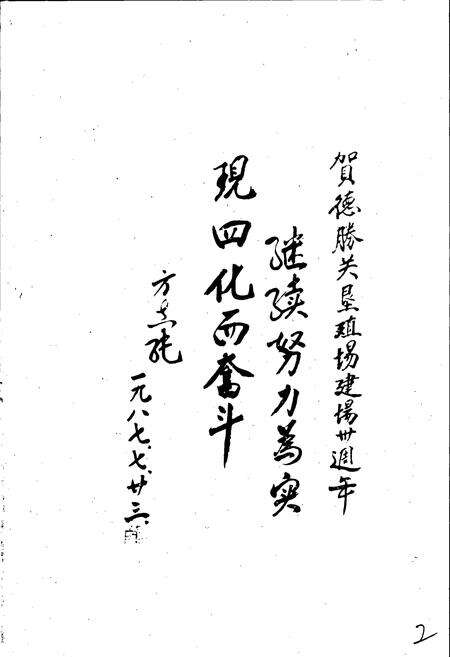 賀德勝关垦殖場建場卅週年
继续努力為实
現四化而奮斗
方志纯
一九八七、七、廿三、
2